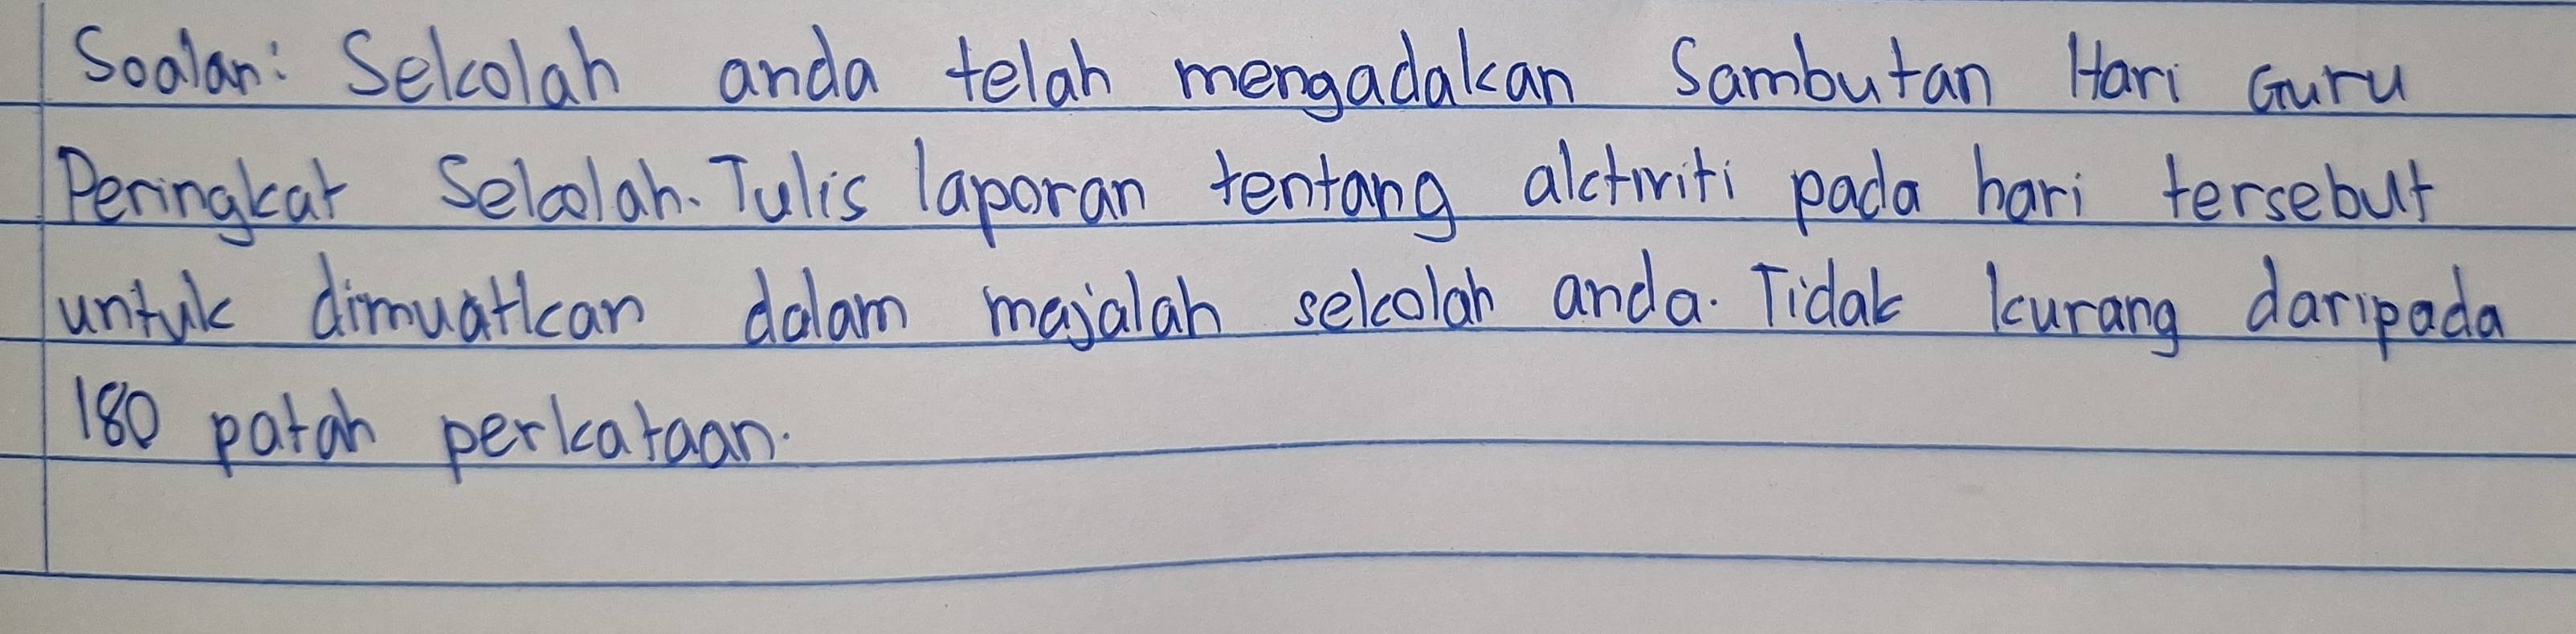 Soalan: Sekolah anda telah mengadakan Sambutan Hari Guru
Peringkat Sekolah. Tulis laporan tentang aktiviti pada hari tersebut
untuk dimuatkan dalam majalah sekolah anda. Tidak kurang daripada
180 patah perkataan.